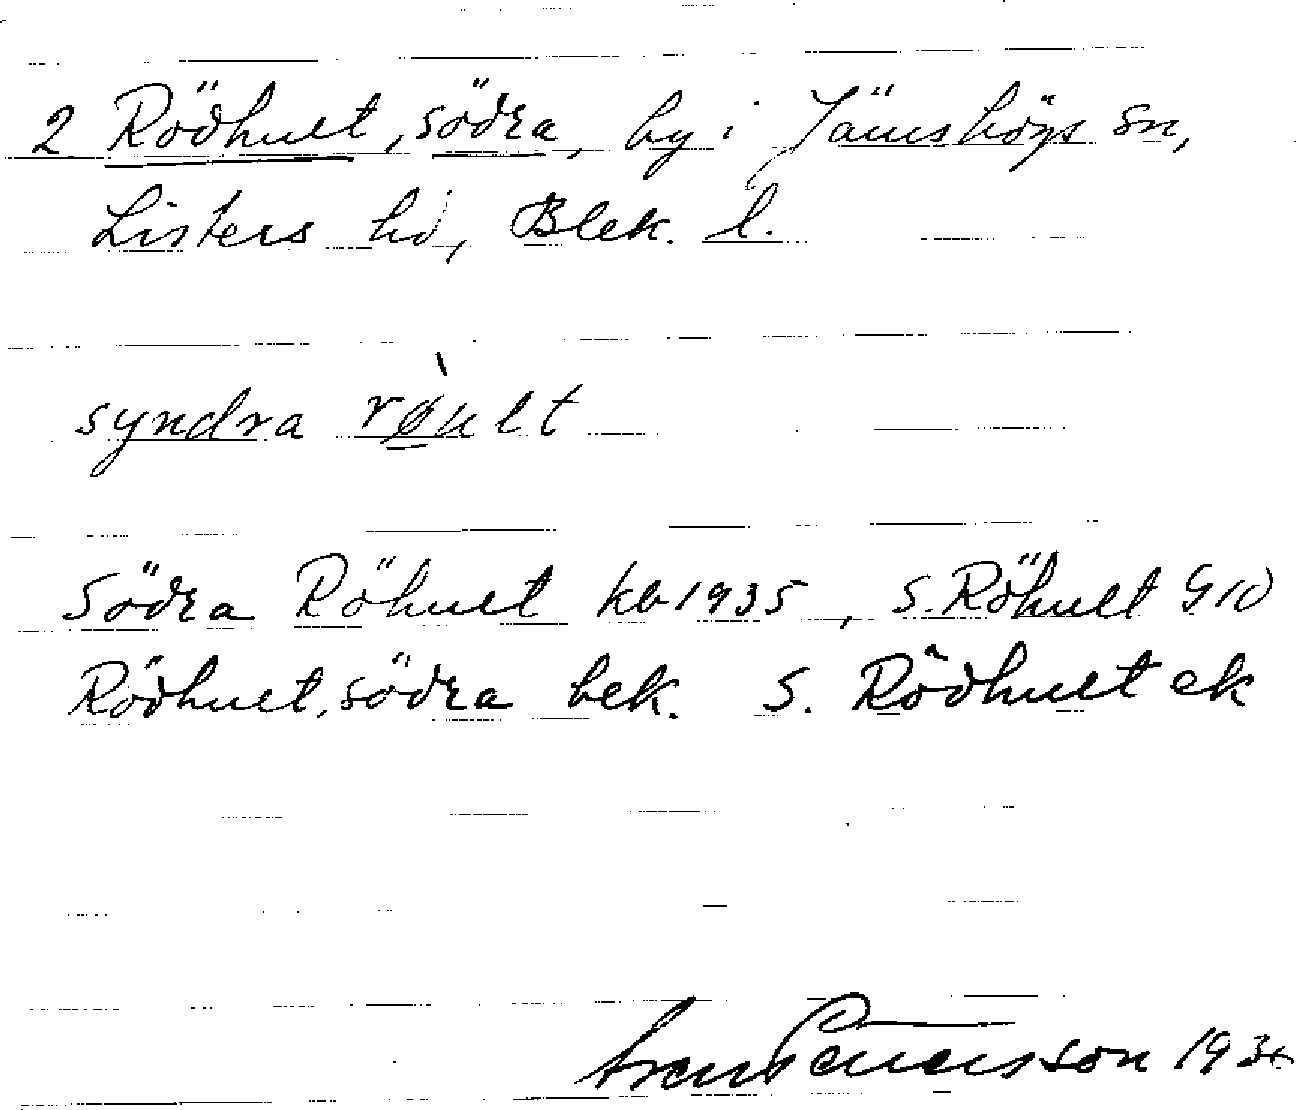 2 Rödhult, södra, by i Jämshögs sn,
Listers hd, Blek. l.
syndra rø̀ult
Södra Röhult kb 1935, S. Röhult G10
Rödhult, södra bek. S. Rödhult ek
son 193